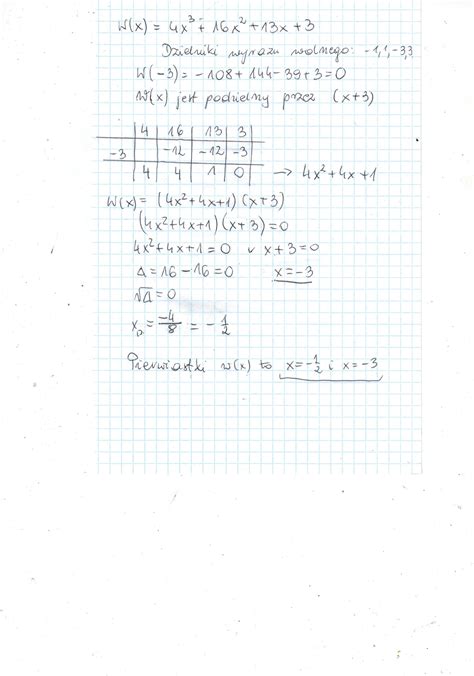 W(x) = 4x³ + 16x² + 13x + 3
Dzielniki wyrazu wolnego: -1,1,-3,3
W(-3) = -108 + 144 - 39 + 3 = 0
W(x) jest podzielny przez (x+3)
4 | 16 | 13 | 3
-3 | | -12 | -12 | -3
4 | 4 | 1 | 0 → 4x² + 4x + 1
W(x) = (4x² + 4x + 1)(x + 3)
(4x² + 4x + 1)(x + 3) = 0
4x² + 4x + 1 = 0 v x + 3 = 0
Δ = 16 - 16 = 0 x = -3
√Δ = 0
x₀ = -4/8 = -1/2
Pierwiastki w(x) to x = -1/2 i x = -3